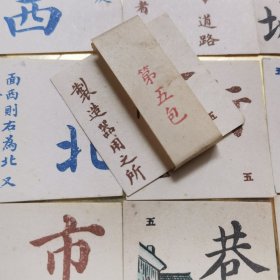 西
者
道路
第五包
製造器用之所
面西則右為北又
北
五
市
五
巷